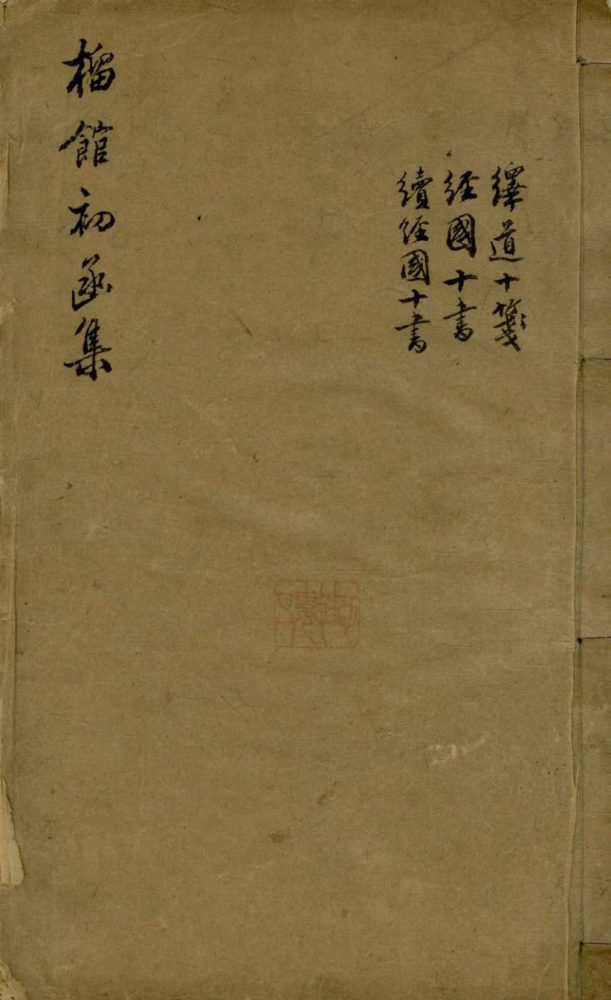 繹道十箋
経國十書
續経國十書
榴館初函集